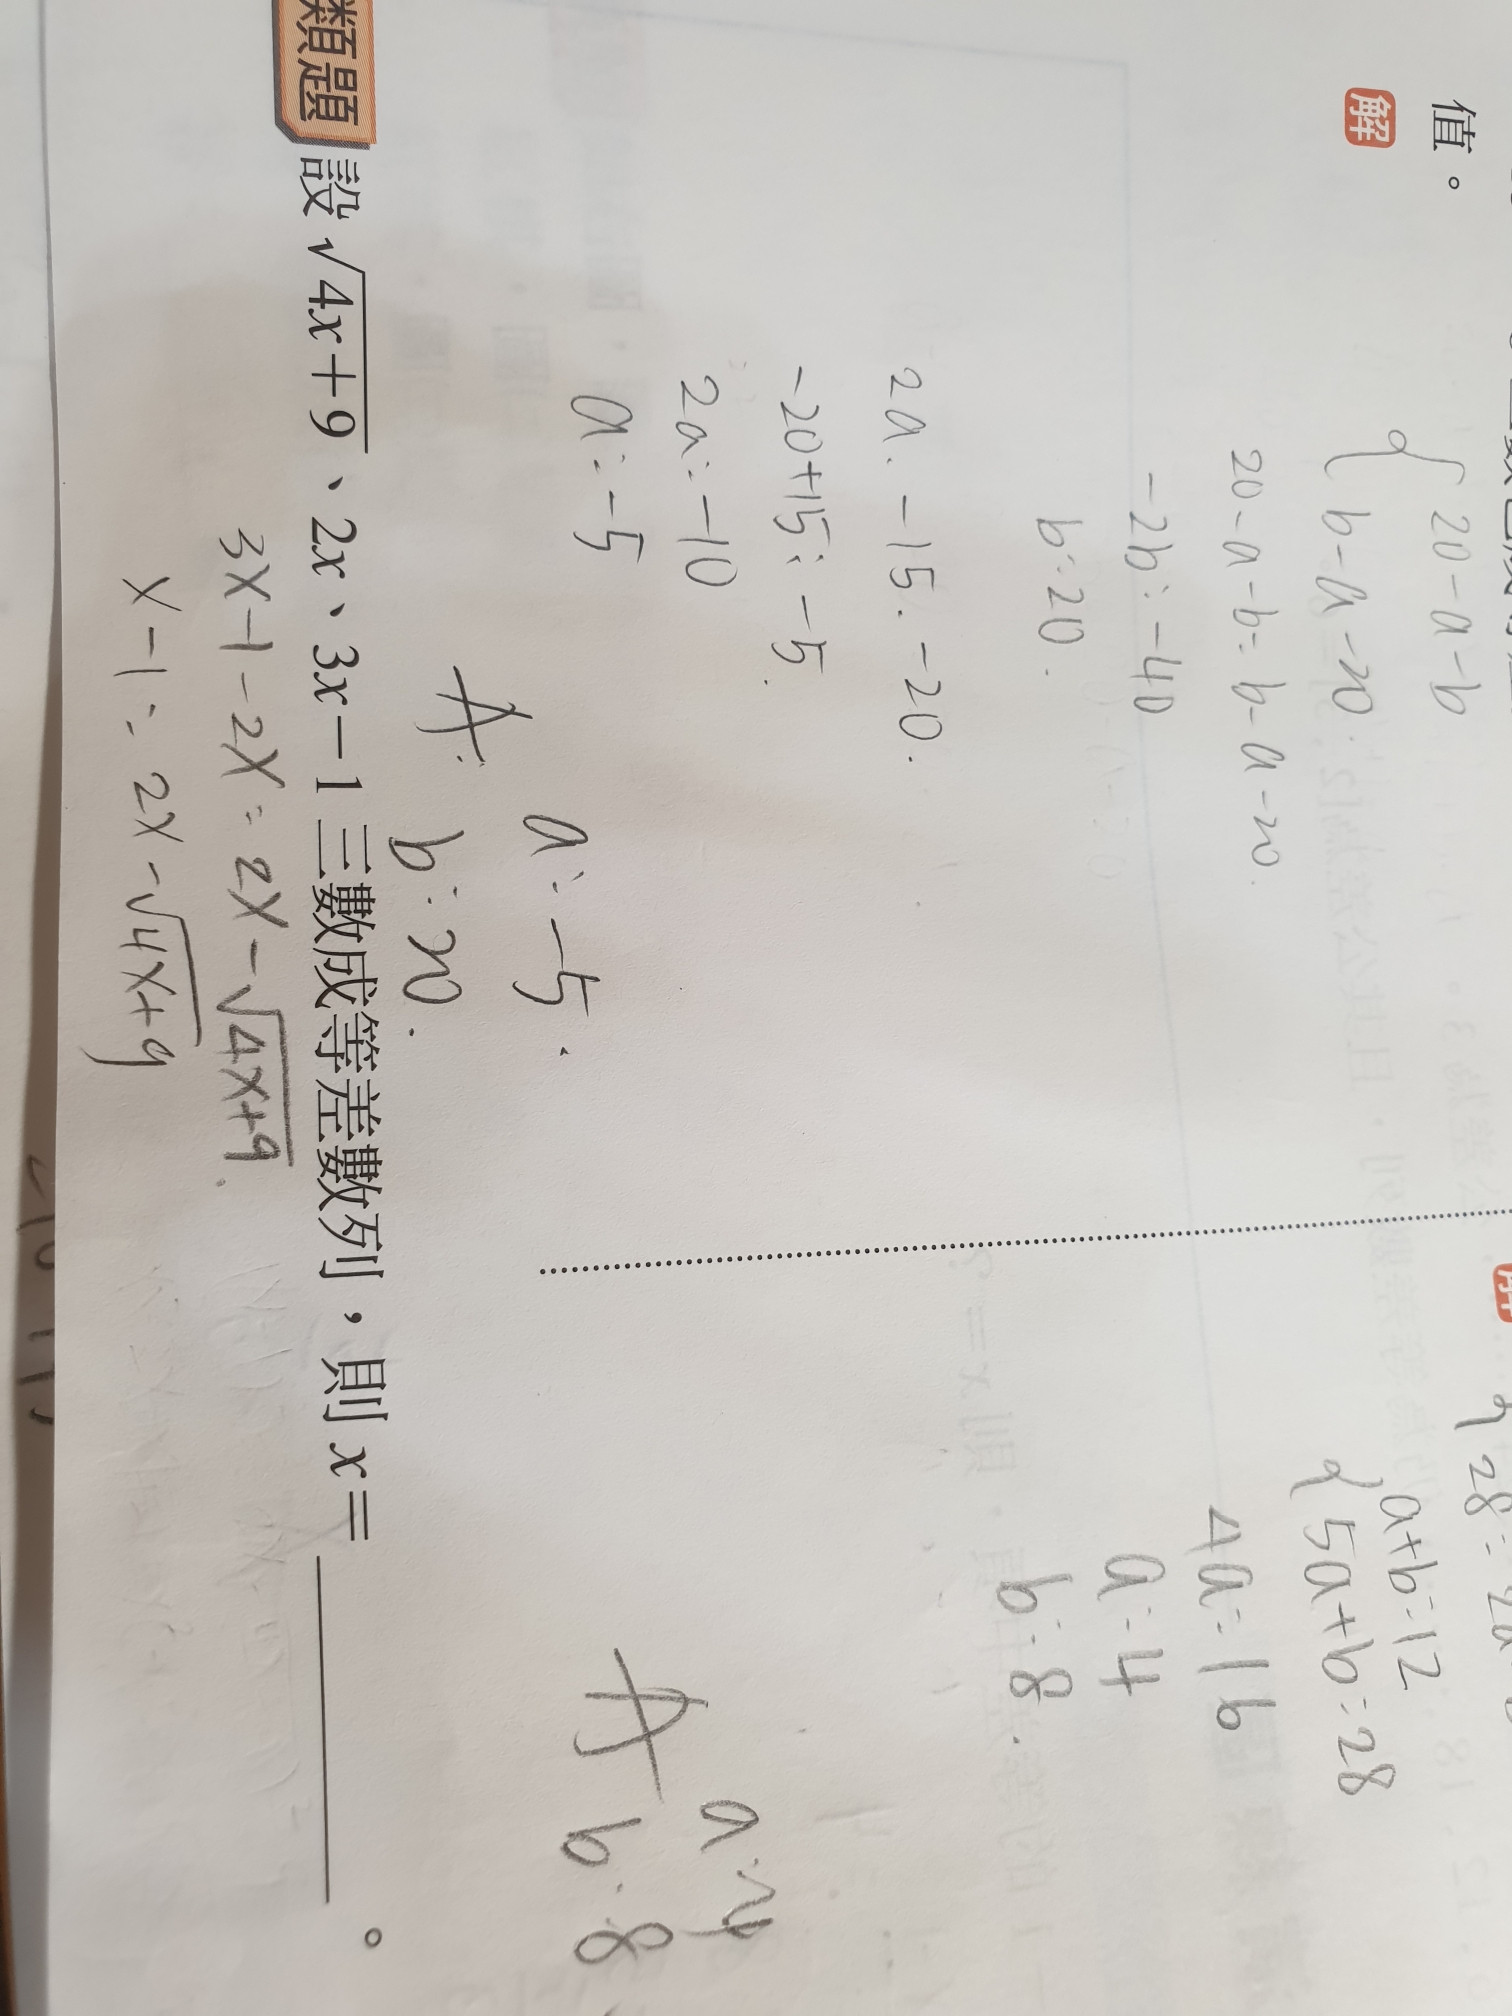 值。
解
20-a-b
b-a-20
20-a-b=b-a-20
-2b=-40
b=20.
2a.-15.-20.
-20+15=-5.
2a=-10
a=-5
A: a=-5.
b=20.
a+b=12
5a+b=28
4a=16
a=4
b=8.
A a=4
b=8
類題 設√4x+9、2x、3x-1三數成等差數列,則x=______。
3x-1-2x=2x-√4x+9.
x-1=2x-√4x+9